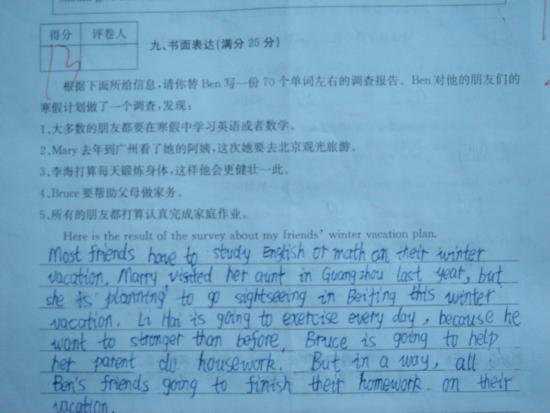 得分 评卷人
13
九、书面表达(满分25分)
根据下面所给信息,请你替Ben写一份70个单词左右的调查报告。Ben对他的朋友们的
寒假计划做了一个调查,发现:
1、大多数的朋友都要在寒假中学习英语或者数学。
2、Mary去年到广州看了她的阿姨,这次她要去北京观光旅游。
3、李海打算每天锻炼身体,这样他会更健壮一此。
4、Bruce要帮助父母做家务。
5、所有的朋友都打算认真完成家庭作业。
Here is the result of the survey about my friends' winter vacation plan.
Most friends have to study English or math on their winter
vacation. Marry visited her aunt in Guangzhou last year, but
she is planning to go sightseeing in Beijing this winter
vacation. Li Hai is going to exercise every day, because he
want to stronger than before. Bruce is going to help
her parent do housework. But in a way, all
Ben's friends going to finish their homework. on their
vacation.